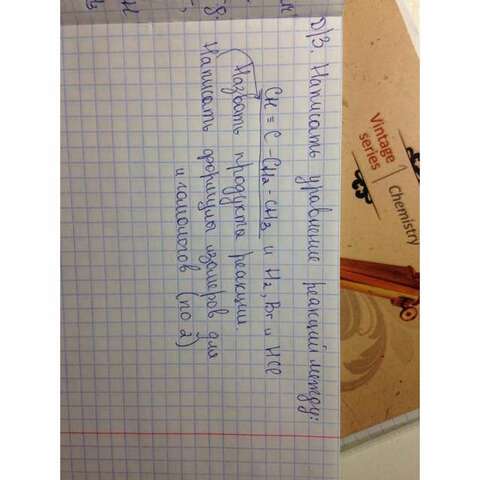 Д/З. Написать уравнение реакций между:
CH ≡ C - CH₂ - CH₃ и H₂, Br и HCl
Назвать продукта реакции.
Написать формулы изомеров для
и гомологов (по 2)
Vintage
series
Chemistry